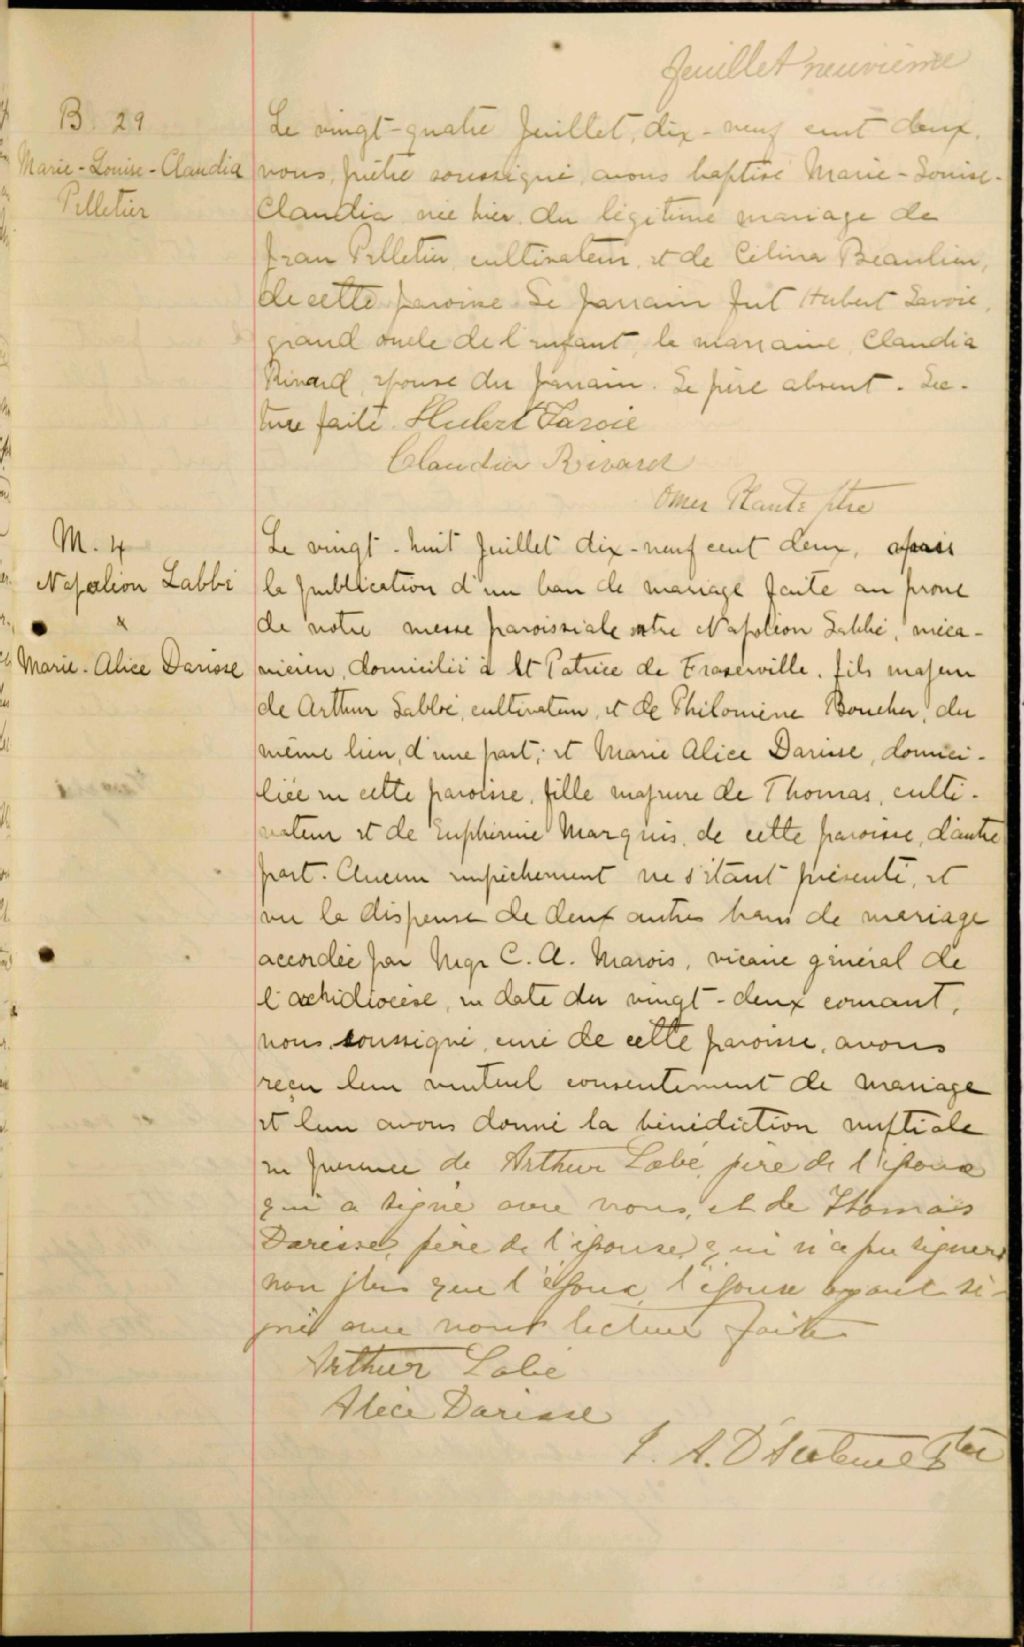 feuillet neuvième
B. 29
Marie-Louise-Claudia
Pelletier
Le vingt-quatre Juillet, dix-neuf cent deux,
nous, prêtre soussigné, avons baptisé Marie-Louise-
Claudia née hier, du légitime mariage de
Jean Pelletier, cultivateur, et de Célina Beaulieu,
de cette paroisse. Le parrain fut Hubert Savoie,
grand oncle de l'enfant, la marraine, Claudia
Rivard, épouse du parrain. Le père absent. Lec-
ture faite. Hubert Savoie
Claudia Rivard
Omer Plante ptre
M. 4
Napoléon Labbé
&
Marie-Alice Darisse
Le vingt-huit Juillet dix-neuf cent deux, après
la publication d'un ban de mariage faite au prône
de notre messe paroissiale entre Napoléon Labbé, méca-
nicien, domicilié à St Patrice de Fraserville, fils majeur
de Arthur Labbé, cultivateur, et de Philomène Boucher, du
même lieu, d'une part; et Marie Alice Darisse, domici-
liée en cette paroisse, fille majeure de Thomas, culti-
vateur et de Euphémie Marquis, de cette paroisse, d'autre
part. Aucun empêchement ne s'étant présenté, et
vu la dispense de deux autres bans de mariage
accordée par Mgr C. A. Marois, vicaire général de
l'archidiocèse, en date du vingt-deux courant,
nous, soussigné, curé de cette paroisse, avons
reçu leur mutuel consentement de mariage
et leur avons donné la bénédiction nuptiale
en présence de Arthur Labé, père de l'époux
qui a signé avec nous, et de Thomas
Darisse, père de l'épouse, qui n'a pu signer
non plus que l'époux, l'épouse ayant si-
gné avec nous lecture faite
Arthur Labé
Alice Darisse
J. A. D'Auteuil Ptre